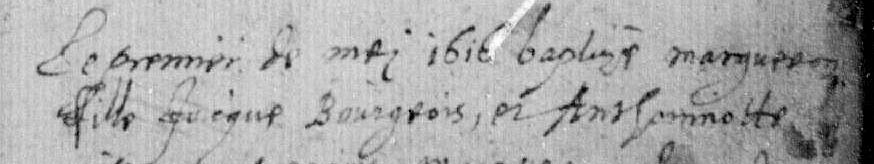 Le premier de mey 1616 baptizé margueron
fille Jacque Bourgeois, et Anthoinnotte